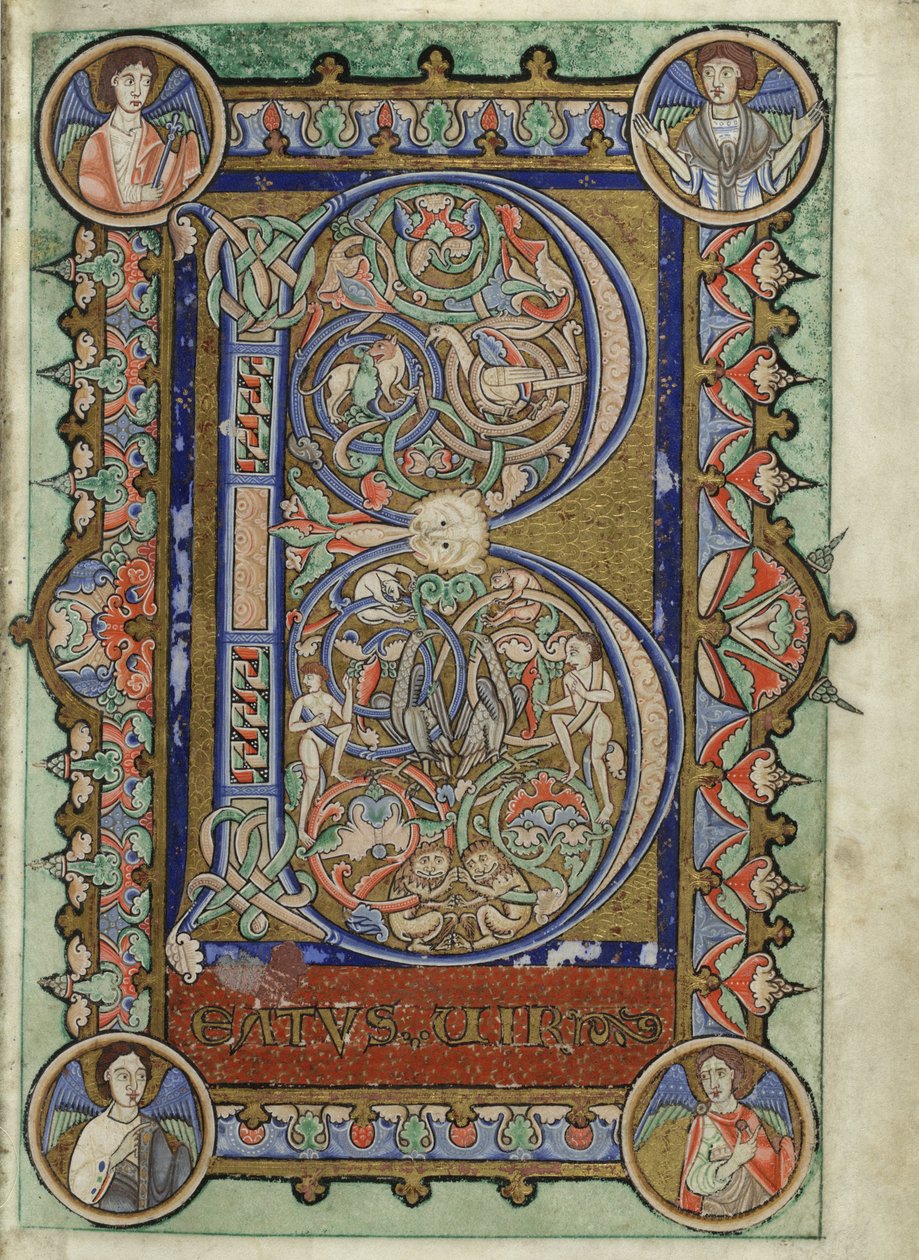 B
EATVS UIR